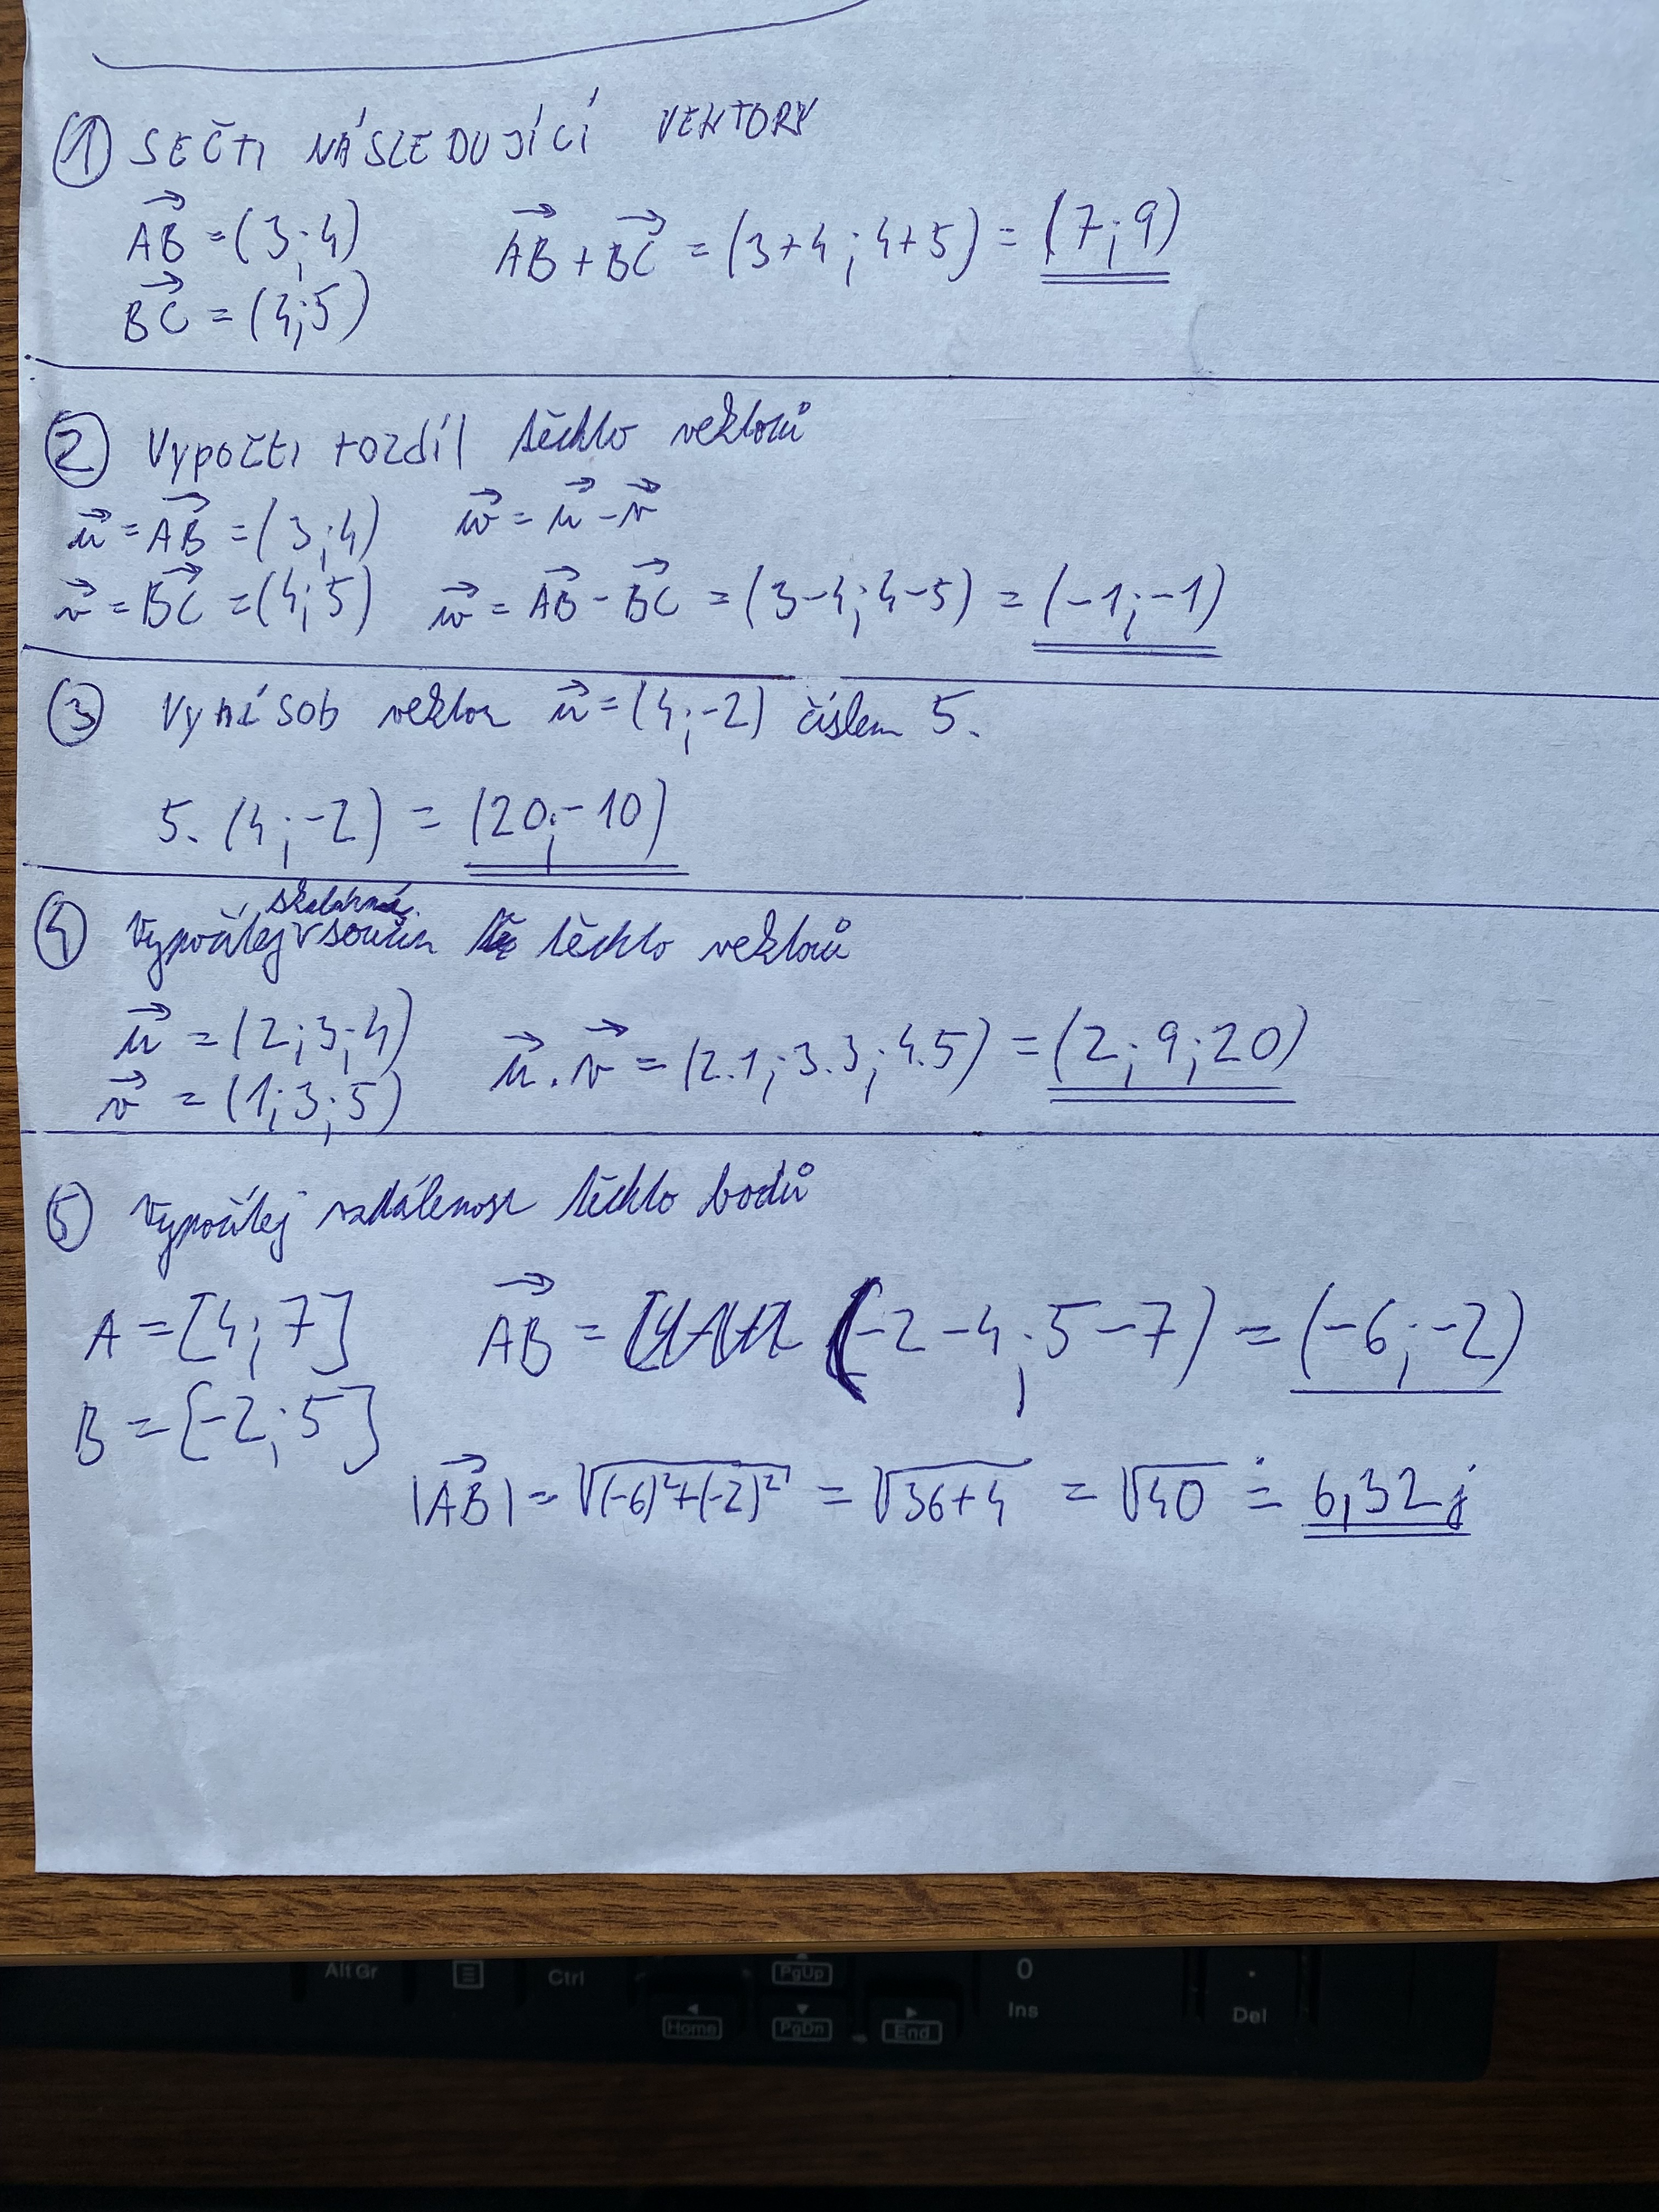 ① SEČTI NÁSLEDUJÍCÍ VEKTORY
→AB = (3;4)    →AB + →BC = (3+4; 4+5) = (7;9)
→BC = (4;5)
② Vypočti rozdíl těchto vektorů
→u = →AB = (3;4)    →w = →u - →v
→v = →BC = (4;5)    →w = →AB - →BC = (3-4; 4-5) = (-1;-1)
③ Vynásob vektor →u = (4;-2) číslem 5.
5. (4;-2) = (20;-10)
④ Vypočítej skalární součin těchto vektorů
→u = (2;3;4)    →u . →v = (2.1; 3.3; 4.5) = (2; 9; 20)
→v = (1;3;5)
⑤ Vypočítej vzdálenost těchto bodů
A = [4;7]    →AB = (-2-4; 5-7) = (-6;-2)
B = [-2;5]
|→AB| = √((-6)²+(-2)²) = √(36+4) = √40 ≐ 6,32 j
Alt Gr Ctrl Home PgUp PgDn End 0 Ins . Del